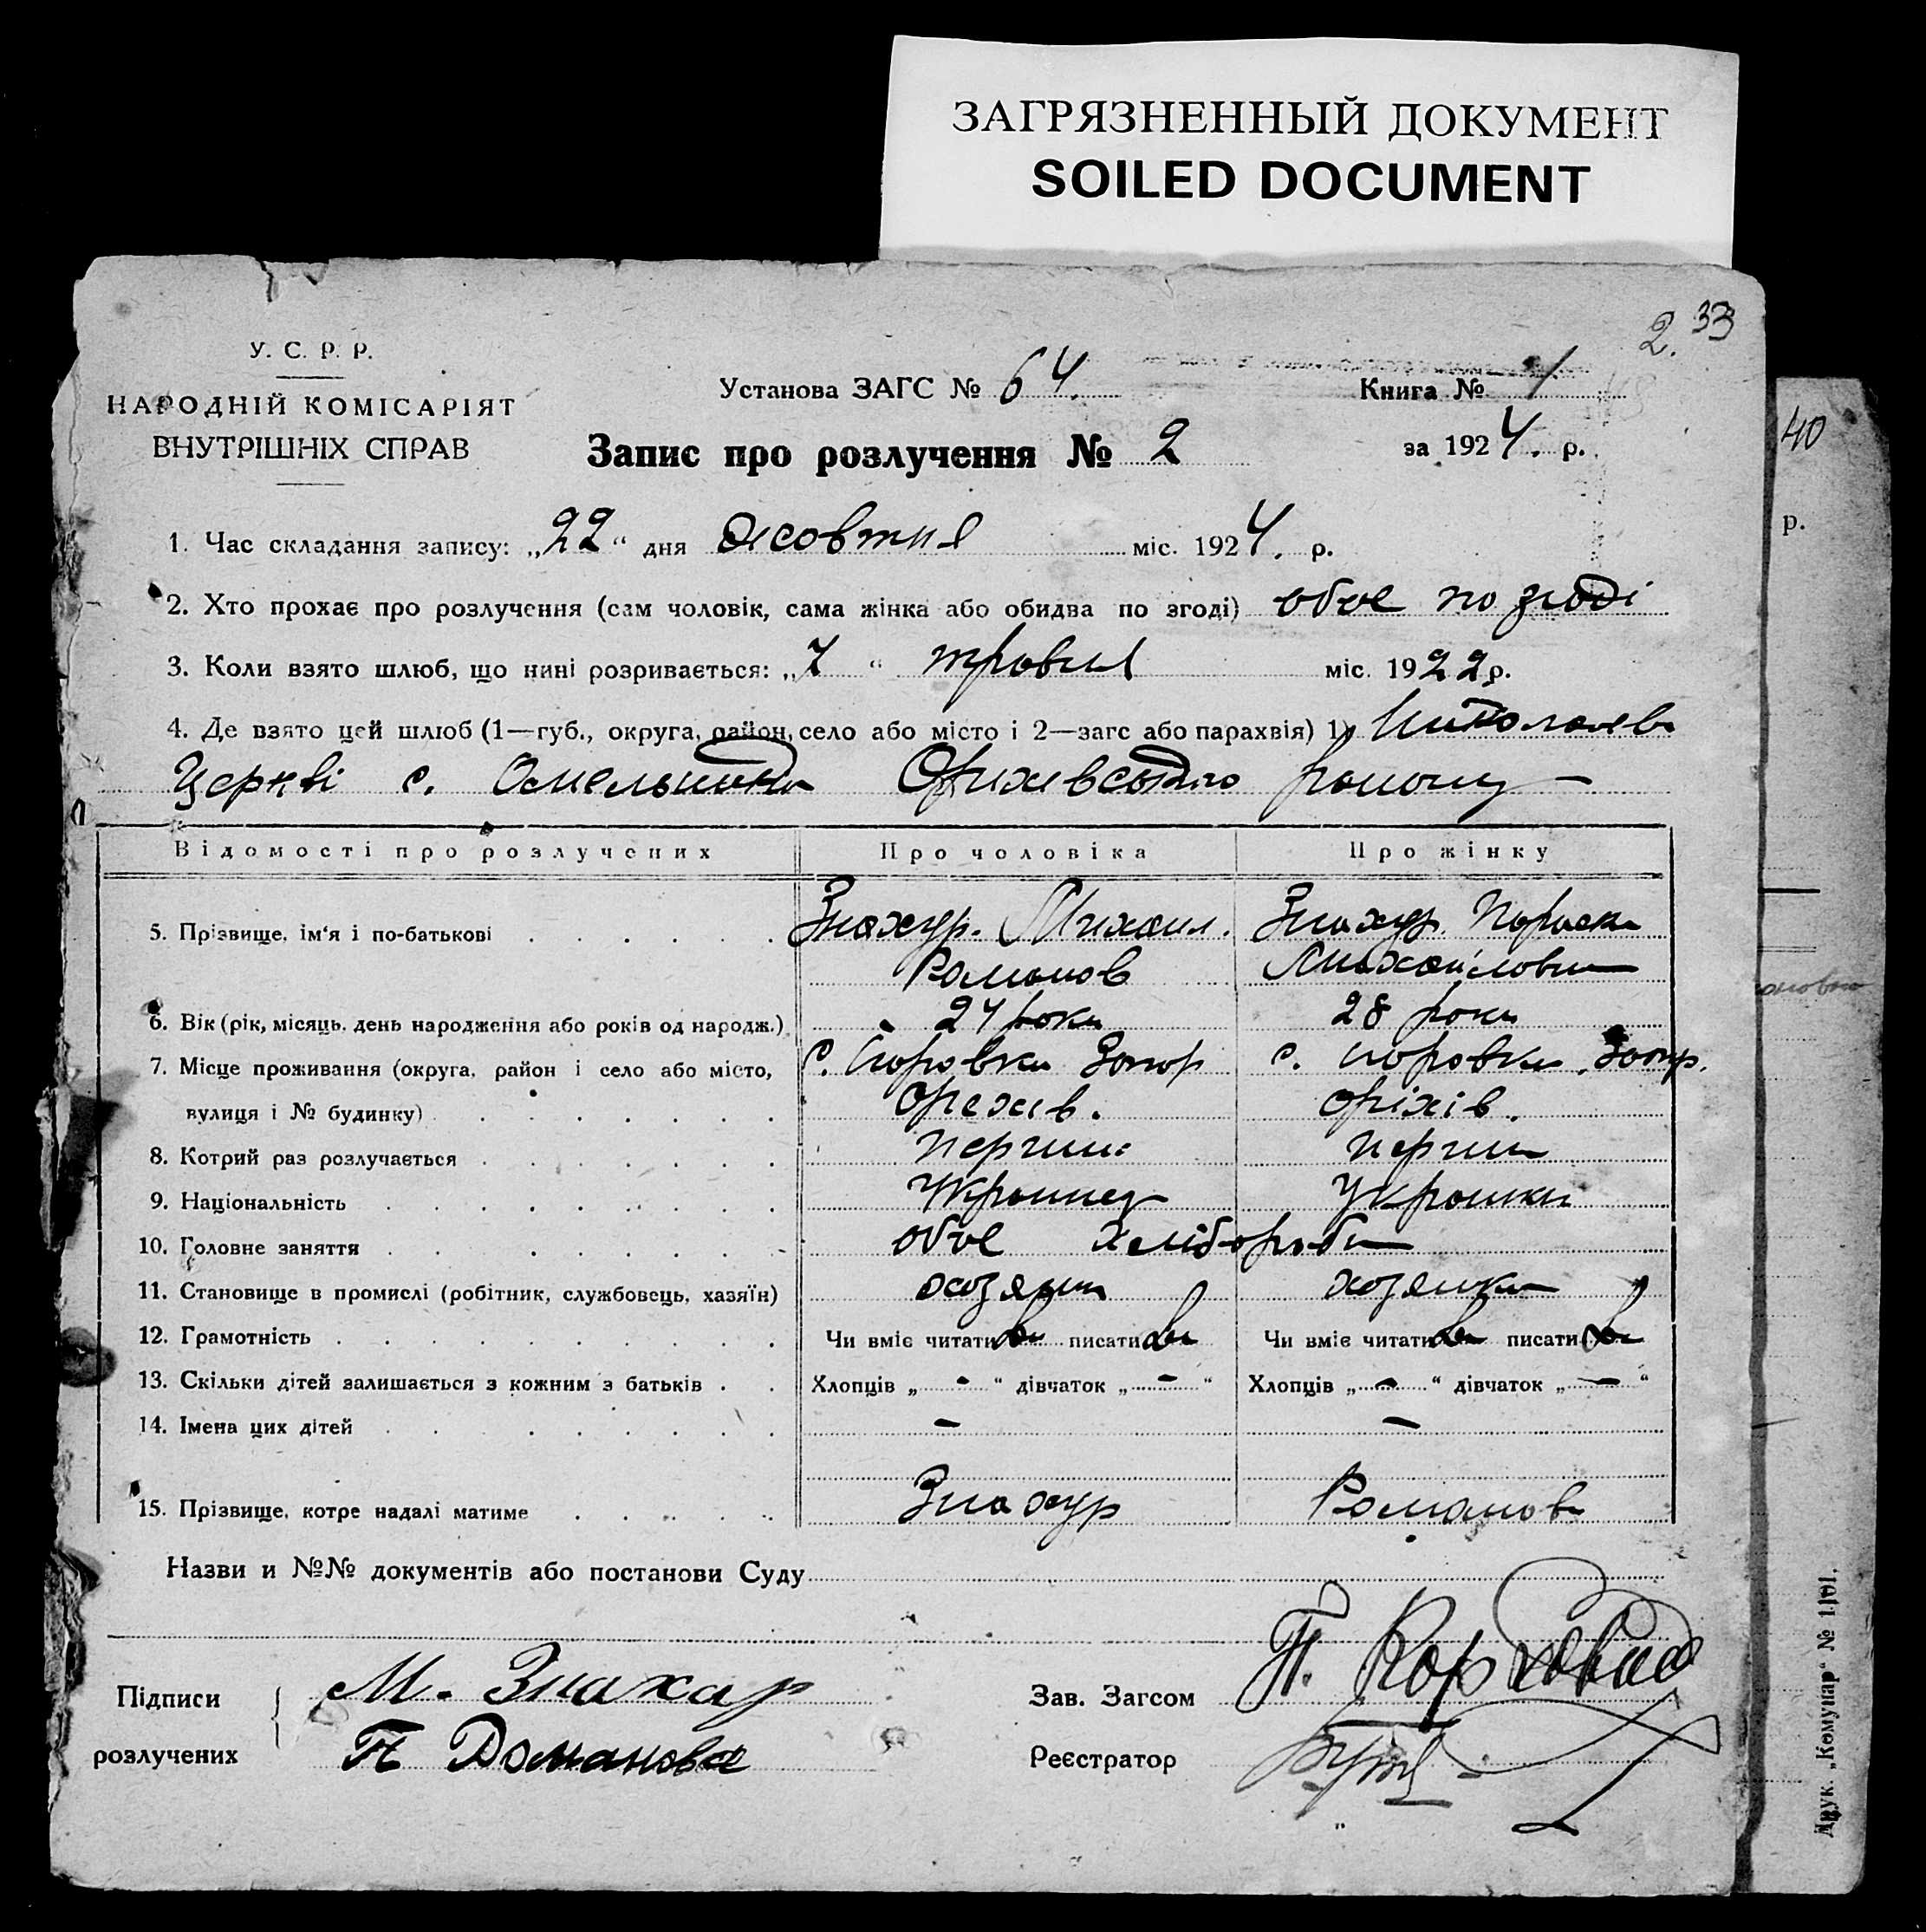 ЗАГРЯЗНЕННЫЙ ДОКУМЕНТ
SOILED DOCUMENT
2. 33
У. С. Р. Р.
НАРОДНІЙ КОМІСАРІЯТ
ВНУТРІШНІХ СПРАВ
Установа ЗАГС № 64.
Книга № 1
Запис про розлучення № 2
за 1924. р.
40
р.
1. Час складання запису: „22“ дня жовтня міс. 1924. р.
2. Хто прохає про розлучення (сам чоловік, сама жінка або обидва по згоді) обоє по згоді
3. Коли взято шлюб, що нині розривається: „7“ травня міс. 1922 р.
4. Де взято цей шлюб (1—губ., округа, район, село або місто і 2—загс або парахвія) 1) Николаєв
Церкві с. Омельника Оріхівського району
Відомості про розлучених Про чоловіка Про жінку
5. Прізвище, ім'я і по-батькові Знахур. Михаил. Знахур. Параска
Романов Михайловна
6. Вік (рік, місяць, день народження або років од народж.) 24 роки 28 роки
7. Місце проживання (округа, район і село або місто, с. Запор с. Запор.
вулиця і № будинку) Орехів. Оріхів.
8. Котрий раз розлучається перший перший
9. Національність Українец Українка
10. Головне заняття обоє хлібороби
11. Становище в промислі (робітник, службовець, хазяїн) хозяин хозяйка
12. Грамотність Чи вміє читати писати Чи вміє читати писати
13. Скільки дітей залишається з кожним з батьків Хлопців „-“ дівчаток „-“ Хлопців „-“ дівчаток „-“
14. Імена цих дітей - -
15. Прізвище, котре надалі матиме Знахур Романова
Назви и №№ документів або постанови Суду
Підписи М. Знахар
розлучених П Доманова
Зав. Загсом П.
Реєстратор
Друк. „Комунар“ № 1101.